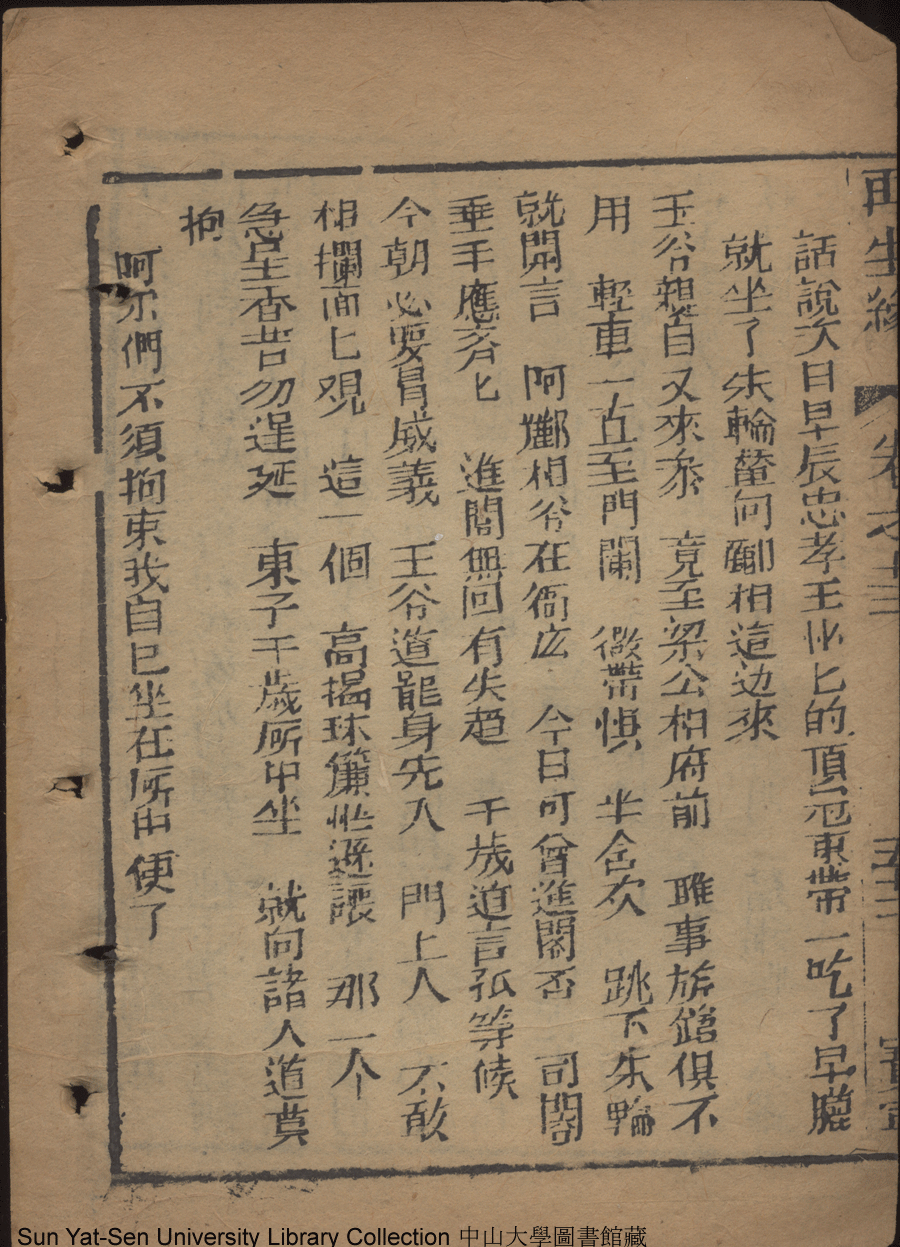 再生緣 卷之十三 五十二
話說次日早辰忠孝王忙匕的頂冠束帶一吃了早膳
就坐了朱輪輦向酈相這边來
王爷親自又來叅 竟至梁公相府前 騅事旂鎗俱不
用 輕車一直至門闌 㣲帶惧 半含欢 跳下朱輪
就開言 阿酈相爷在衙庅 今日可曾進閣否 司閽
垂手應斉匕 進閣無回有失趋 千歲迫言孤等候
今朝必要冒威義 王爷道罷身先入 門上人 不敢
相攔面匕覌 這一個 高揭珠簾忙遜讓 那一个
急呈香茗勿遲延 東子千歲㕔中坐 就向諸人道莫
拘
呵尔們不須拘束我自已坐在㕔中便了
Sun Yat-Sen University Library Collection 中山大學圖書館藏